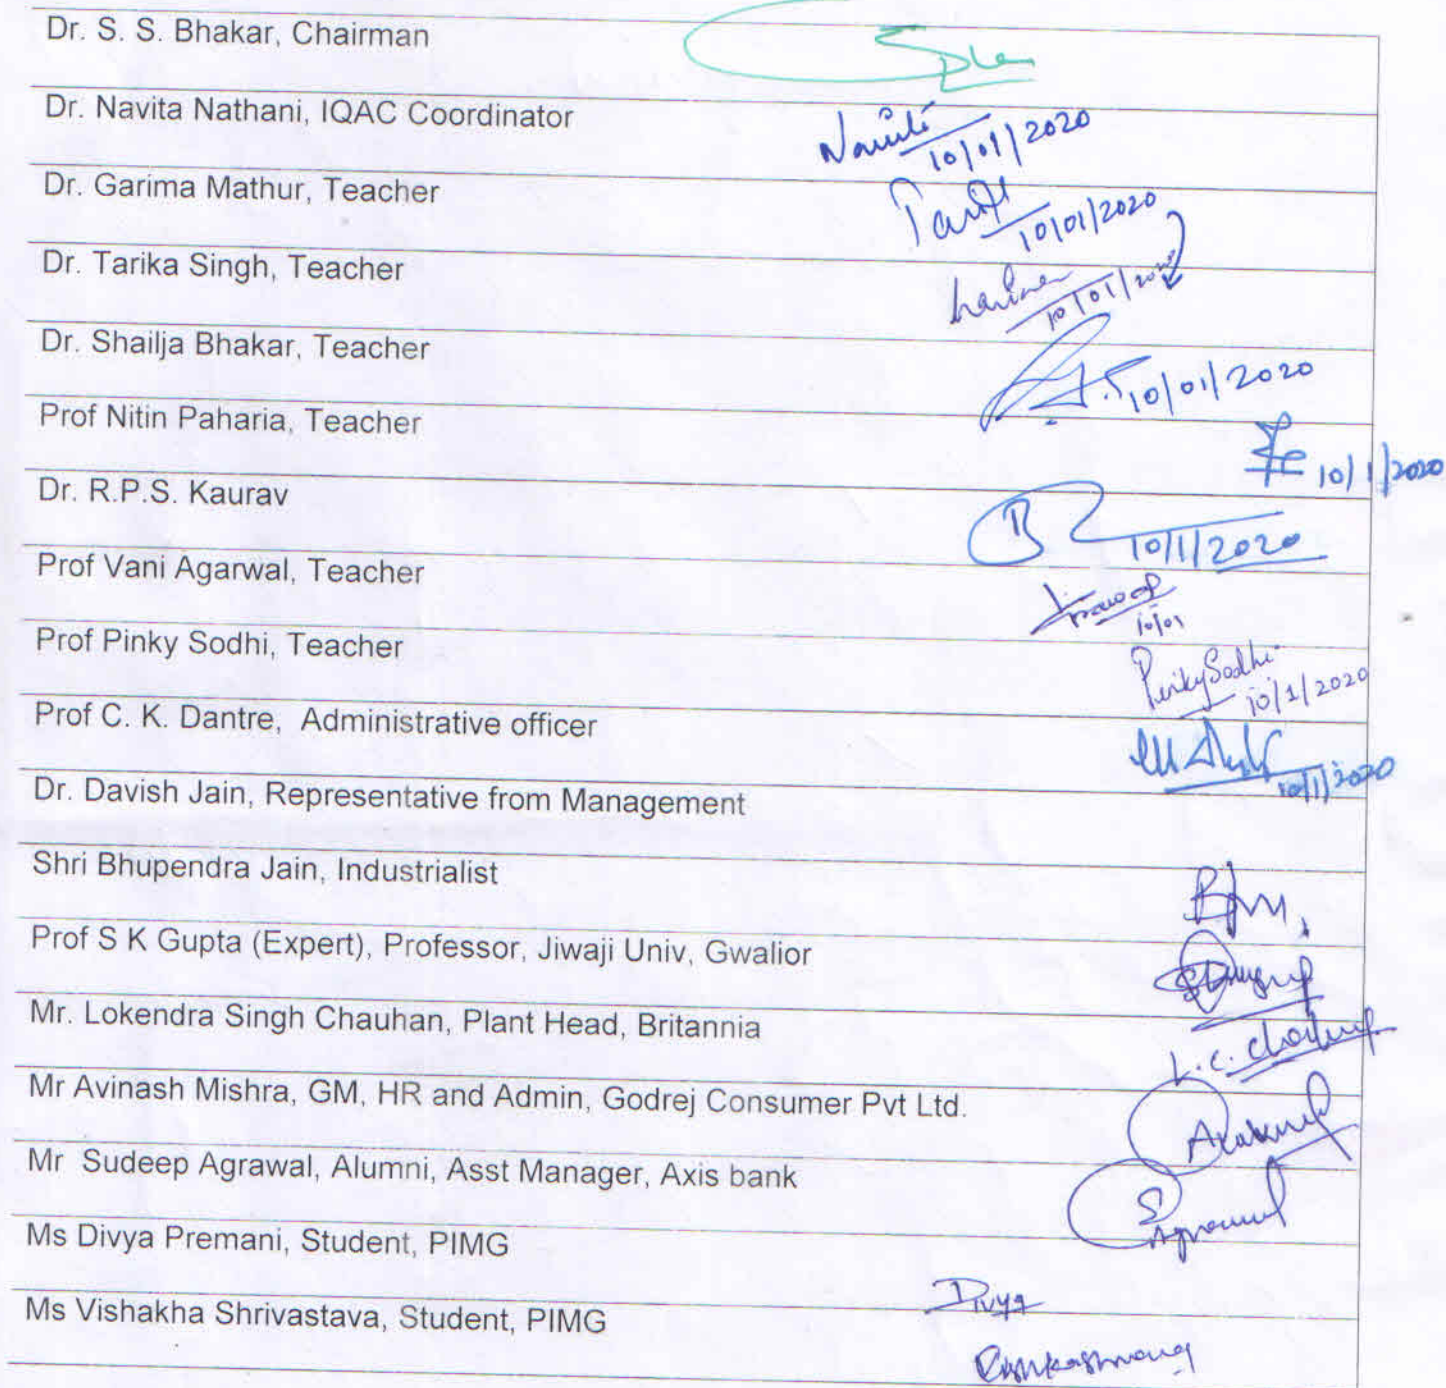 Dr. S. S. Bhakar, Chairman
Dr. Navita Nathani, IQAC Coordinator
Navita 10/01/2020
Dr. Garima Mathur, Teacher
10/01/2020
Dr. Tarika Singh, Teacher
10/01/2020
Dr. Shailja Bhakar, Teacher
10/01/2020
Prof Nitin Paharia, Teacher
10/1/2020
Dr. R.P.S. Kaurav
10/1/2020
Prof Vani Agarwal, Teacher
10/01
Prof Pinky Sodhi, Teacher
Pinky Sodhi 10/1/2020
Prof C. K. Dantre, Administrative officer
10/1/2020
Dr. Davish Jain, Representative from Management
Shri Bhupendra Jain, Industrialist
Prof S K Gupta (Expert), Professor, Jiwaji Univ, Gwalior
Mr. Lokendra Singh Chauhan, Plant Head, Britannia
Mr Avinash Mishra, GM, HR and Admin, Godrej Consumer Pvt Ltd.
Mr Sudeep Agrawal, Alumni, Asst Manager, Axis bank
Ms Divya Premani, Student, PIMG
Divya
Ms Vishakha Shrivastava, Student, PIMG